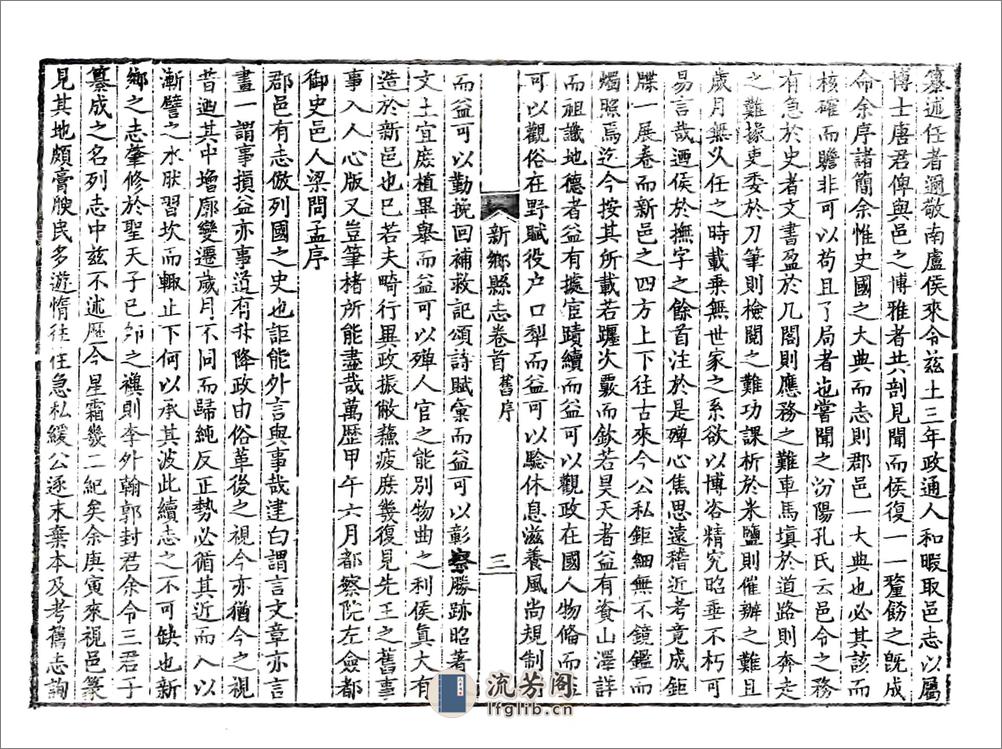 纂述任者適敬南盧侯來令茲土三年政通人和暇取邑志以屬
博士唐君俾與邑之博雅者共剖見聞而侯復一一釐飭之既成
命余序諸簡余惟史國之大典而志則郡邑一大典也必其該而
核確而贍非可以苟且了局者也嘗聞之汾陽孔氏云邑令之務
有急於史者文書盈於几閣則應務之難車馬填於道路則奔走
之難據吏委於刀筆則檢閱之難功課析於米鹽則催辦之難且
歲月無久任之時載乘無世家之系欲以博咨精究昭垂不朽可
易言哉迺侯於撫字之餘首注於是殫心焦思遠稽近考竟成鉅
牒一展卷而新邑之四方上下往古來今公私鉅細無不鏡鑑而
燭照焉迄今按其所載若躔次覈而欽若昊天者益有資山澤詳
而祖讖地德者益有據宦蹟續而益可以觀政在國人物脩而益
可以觀俗在野賦役户口犁而益可以驗休息滋養風尚規制
新鄉縣志卷首 舊序 三
而益可以勤挽回補救記頌詩賦彙而益可以彰察勝跡昭著
文土宜庶植畢舉而益可以殫人官之能別物曲之利侯眞大有
造於新邑也巳若夫畸行異政振敝蘓疲庶幾復見先王之舊事
事入人心版又豈筆楮所能盡哉萬歷甲午六月都察院左僉都
御史邑人梁問孟序
郡邑有志倣列國之史也詎能外言與事哉建白謂言文章亦言
畫一謂事損益亦事道有升降政由俗革後之視今亦猶今之視
昔迺其中增廓變遷歲月不同而歸純反正勢必循其近而入以
漸譬之水肰習坎而輙止下何以承其波此續志之不可缺也新
鄉之志肇修於聖天子巳卯之禩則李外翰郭封君余令三君子
纂成之名列志中茲不述歷今星霜幾二紀矣余庚寅來視邑篆
見其地頗膏腴民多遊惰徃徃急私緩公逐末棄本及考舊志詢
流芳阁
lfglib.cn